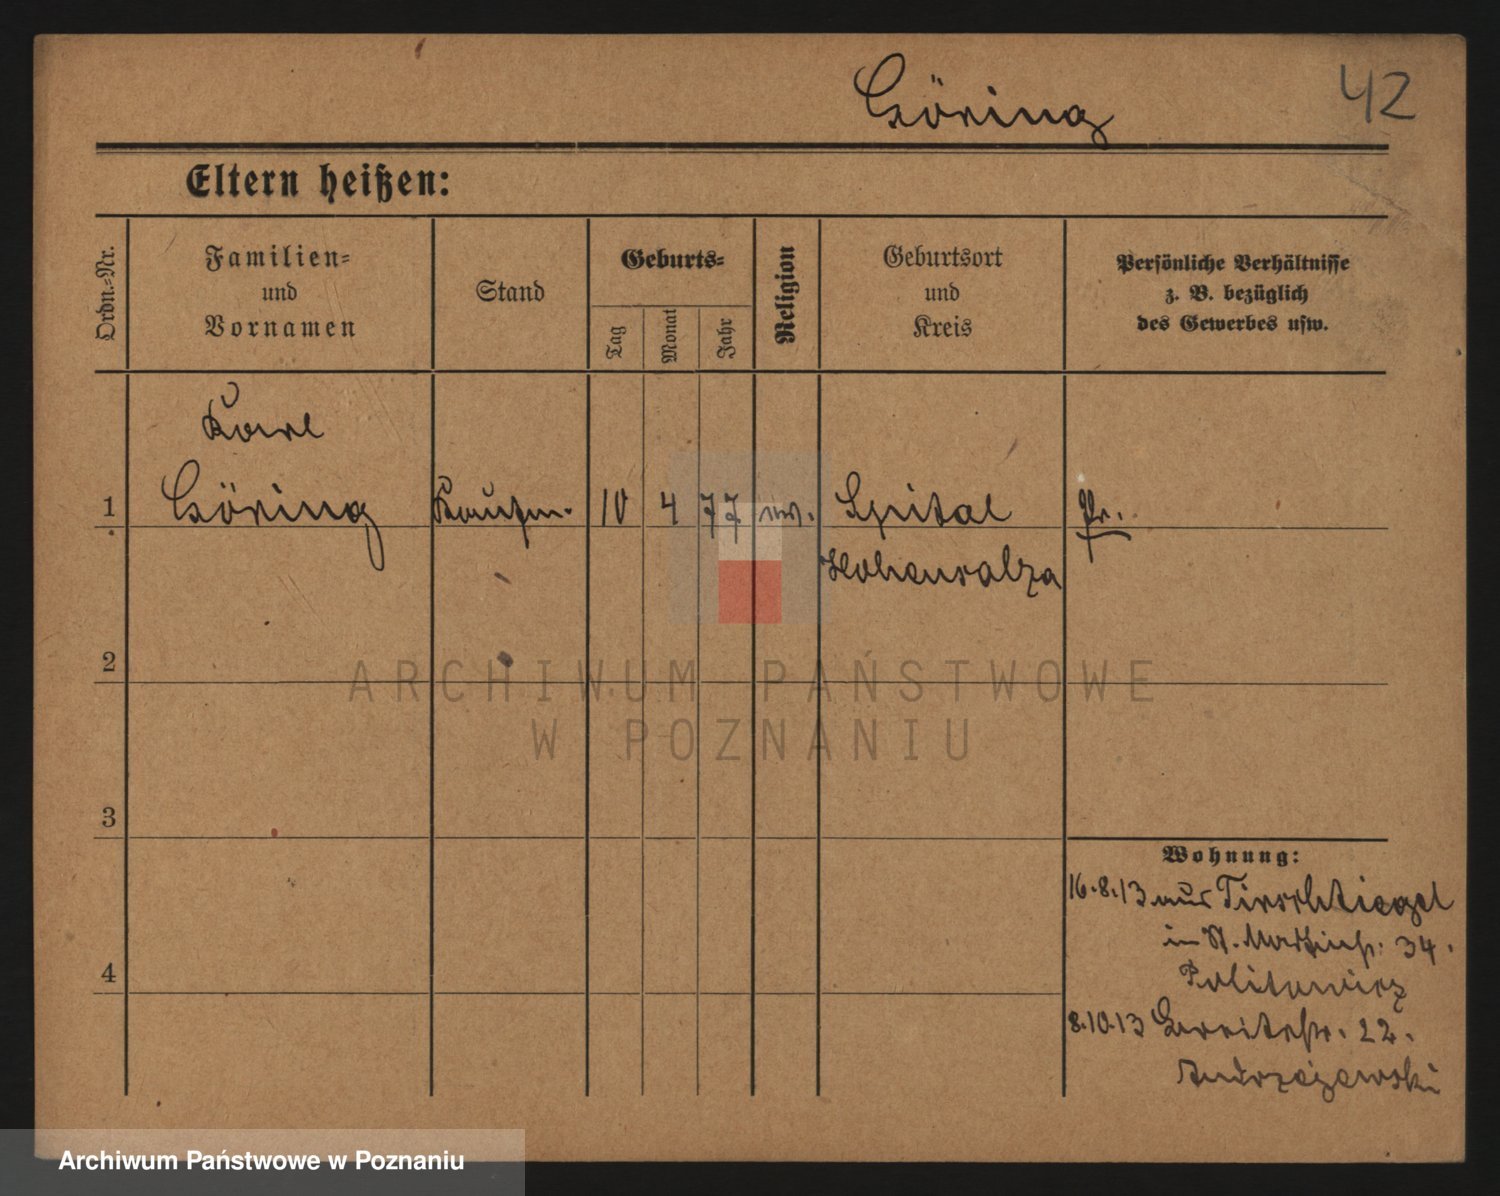 Göring 42
Eltern heißen:
Ordn.-Nr.
Familien-
und
Vornamen
Stand
Geburts-
Tag
Monat
Jahr
Religion
Geburtsort
und
Kreis
Persönliche Verhältnisse
z. B. bezüglich
des Gewerbes usw.
Karl
1 Göring Kaufm. 10 4 77 Spital Pr.
Hohensalza
2
3
4
Wohnung:
16.8.13 aus Tirschtiegel
in St. Martinstr. 34.
Politowicz
8.10.13 22.
Andrzejewski
ARCHIWUM PAŃSTWOWE
W POZNANIU
Archiwum Państwowe w Poznaniu